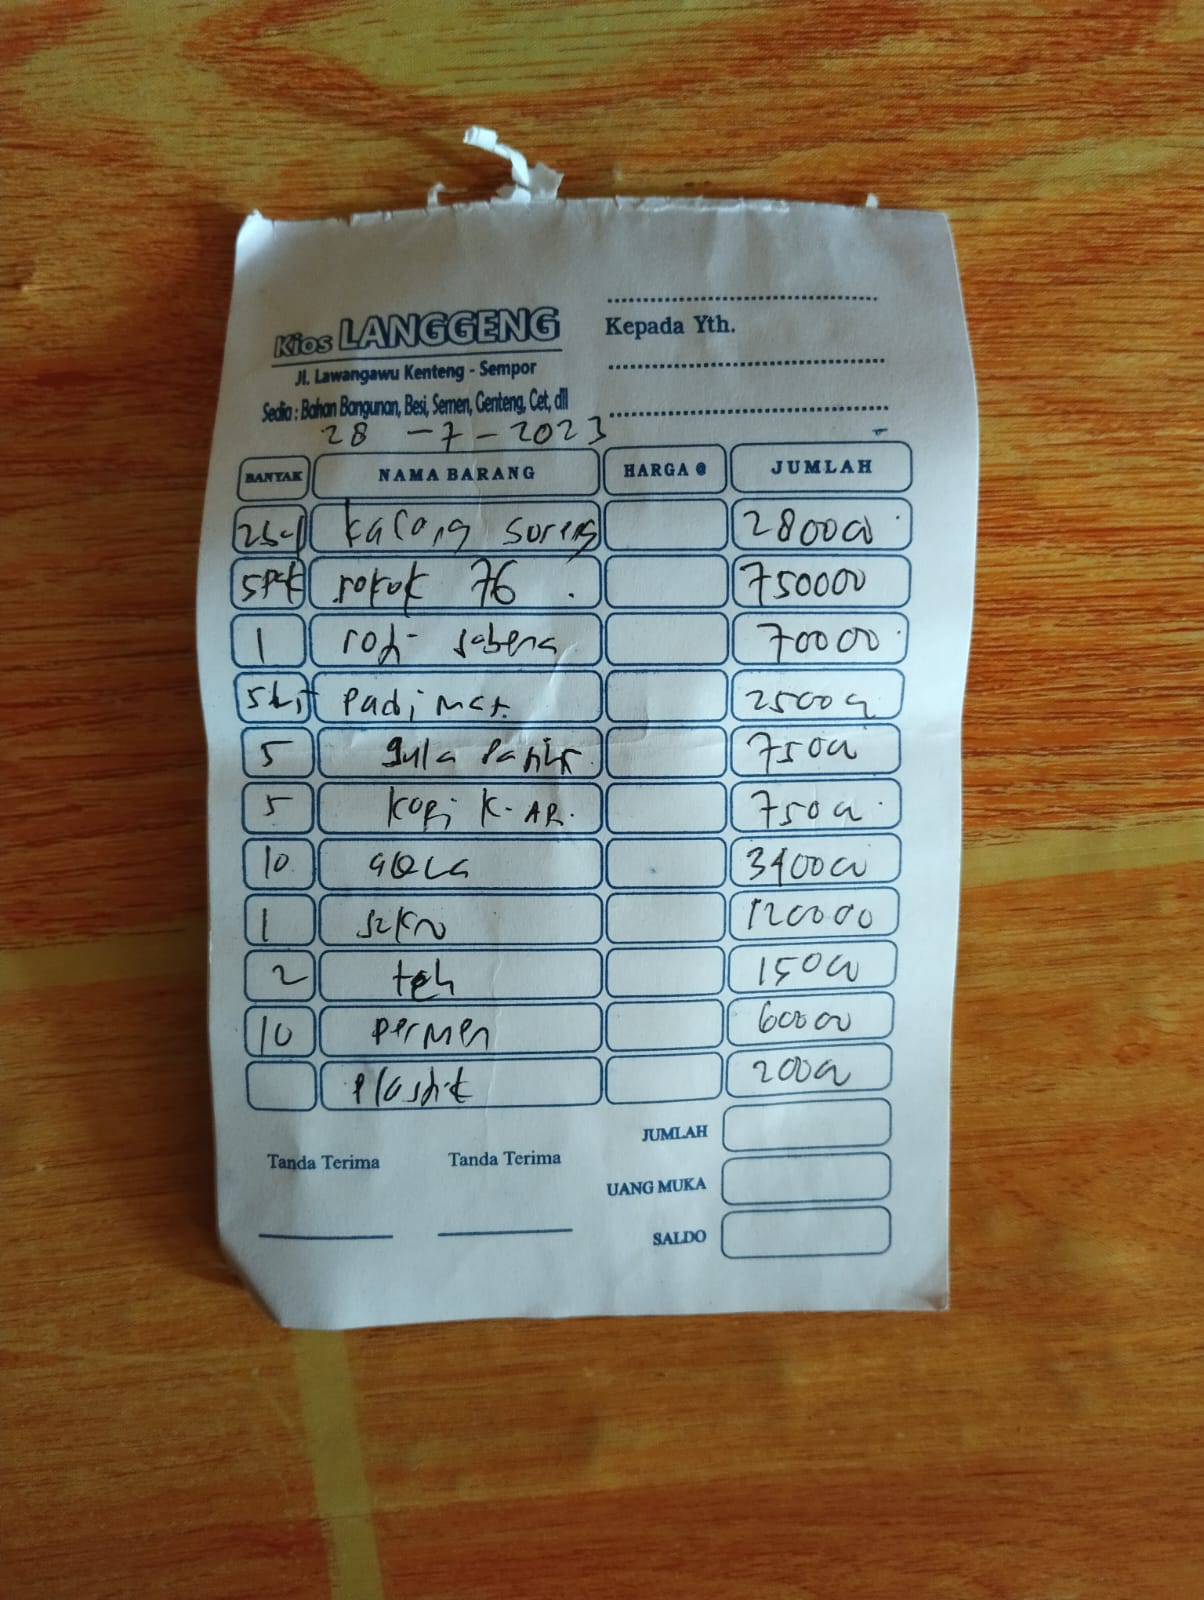 Kios LANGGENG
Jl. Lawangawu Kenteng - Sempor
Sedia : Bahan Bangunan, Besi, Semen, Genteng, Cet, dll
Kepada Yth.
28 - 7 - 2023
BANYAK NAMA BARANG HARGA @ JUMLAH
kacang 28000
5 Pak rokok 76 750000
1 roti 70000
Padi 25000
5 gula Pasir 7500
5 kopi K. AR. 7500
10 34000
1 120000
2 teh 1500
10 permen 60000
Plastik 2000
JUMLAH
Tanda Terima Tanda Terima
UANG MUKA
SALDO